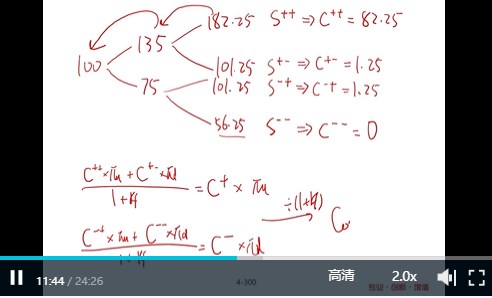 182.25 S⁺⁺ ⇒ C⁺⁺ = 82.25
135
100
101.25 S⁺⁻ ⇒ C⁺⁻ = 1.25
101.25 S⁻⁺ ⇒ C⁻⁺ = 1.25
75
56.25 S⁻⁻ ⇒ C⁻⁻ = 0
C⁺⁺×πu + C⁺⁻×πd
1+rf = C⁺ × πu
÷(1+rf) C₀
C⁻⁺×πu + C⁻⁻×πd
1+rf = C⁻ × πd
11:44 / 24:26
4-300
高清
2.0x